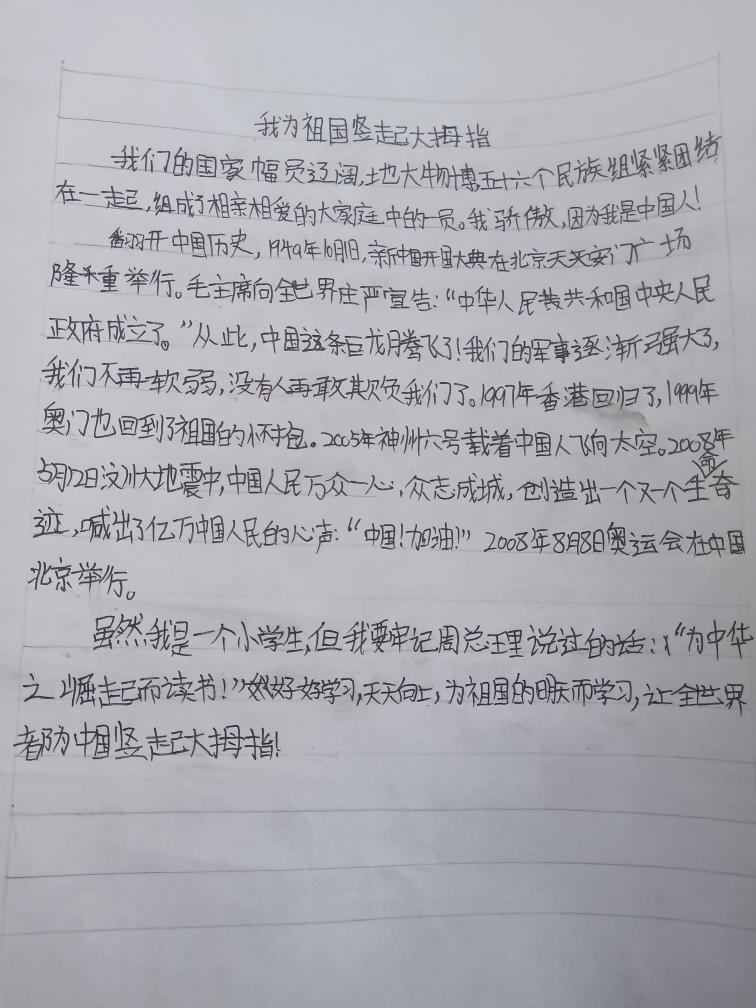 我为祖国竖起大拇指
我们的国家幅员辽阔,地大物博五十六个民族组紧紧团结
在一起,组成了相亲相爱的大家庭中的一员。我骄傲,因为我是中国人!
翻开中国历史,1949年10月1日,新中国开国大典在北京天安门广场
隆重举行。毛主席向全世界庄严宣告:“中华人民共和国中央人民
政府成立了。”从此,中国这条巨龙腾飞了!我们的军事逐渐强大了,
我们不再软弱,没有人再敢欺负我们了。1997年香港回归了,1999年
奥门也回到了祖国的怀抱。2005年神州六号载着中国人飞向太空。2008年
5月12日汶川大地震中,中国人民万众一心,众志成城,创造出一个又一个生命奇
迹,喊出了亿万中国人民的心声:“中国!加油!”2008年8月8日奥运会在中国
北京举行。
虽然我是一个小学生,但我要牢记周总理说过的话:“为中华
之崛起而读书!”我好好学习,天天向上,为祖国的明天而学习,让全世界
都为中国竖起大拇指!